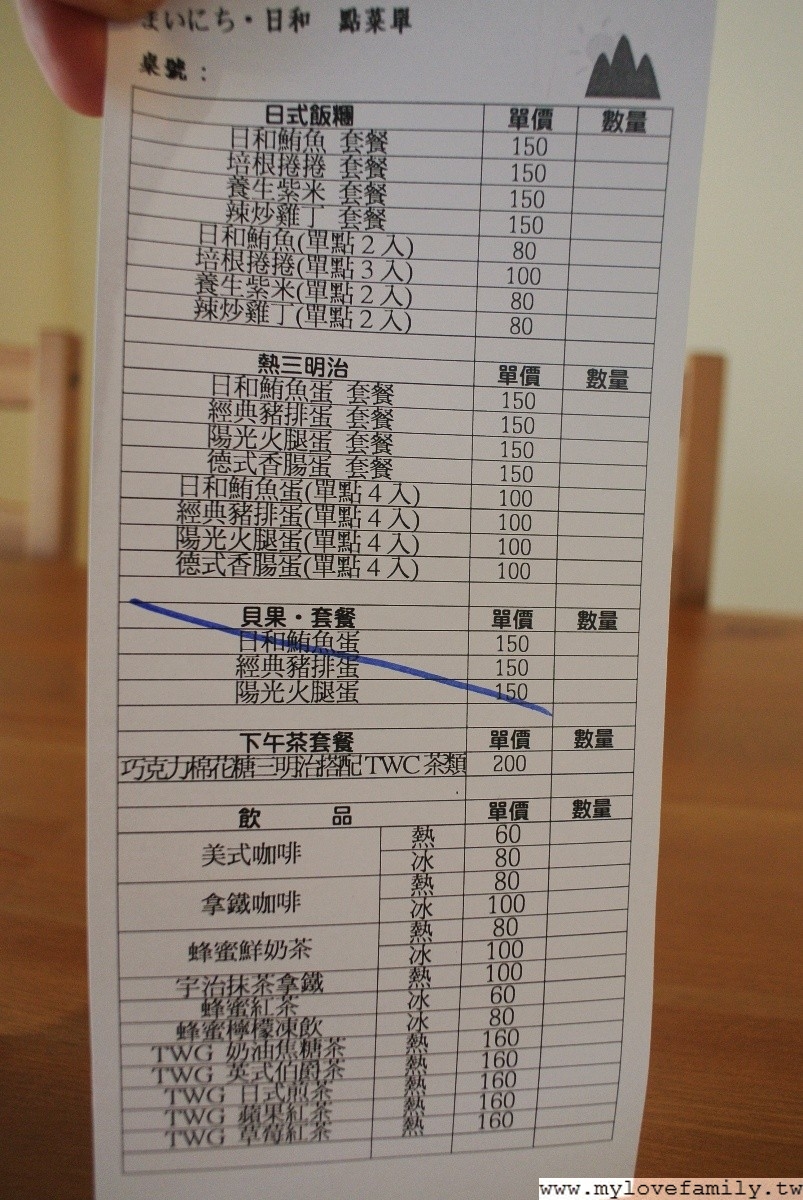 まいにち・日和 點菜單
桌號：
日式飯糰 單價 數量
日和鮪魚 套餐 150
培根捲捲 套餐 150
養生紫米 套餐 150
辣炒雞丁 套餐 150
日和鮪魚(單點2入) 80
培根捲捲(單點3入) 100
養生紫米(單點2入) 80
辣炒雞丁(單點2入) 80
熱三明治 單價 數量
日和鮪魚蛋 套餐 150
經典豬排蛋 套餐 150
陽光火腿蛋 套餐 150
德式香腸蛋 套餐 150
日和鮪魚蛋(單點4入) 100
經典豬排蛋(單點4入) 100
陽光火腿蛋(單點4入) 100
德式香腸蛋(單點4入) 100
貝果・套餐 單價 數量
日和鮪魚蛋 150
經典豬排蛋 150
陽光火腿蛋 150
下午茶套餐 單價 數量
巧克力棉花糖三明治搭配TWC茶類 200
飲品 單價 數量
美式咖啡 熱 60
冰 80
拿鐵咖啡 熱 80
冰 100
蜂蜜鮮奶茶 熱 80
冰 100
宇治抹茶拿鐵 熱 100
蜂蜜紅茶 冰 60
蜂蜜檸檬凍飲 冰 80
TWG 奶油焦糖茶 熱 160
TWG 英式伯爵茶 熱 160
TWG 日式煎茶 熱 160
TWG 蘋果紅茶 熱 160
TWG 草莓紅茶 熱 160
www.mylovefamily.tw